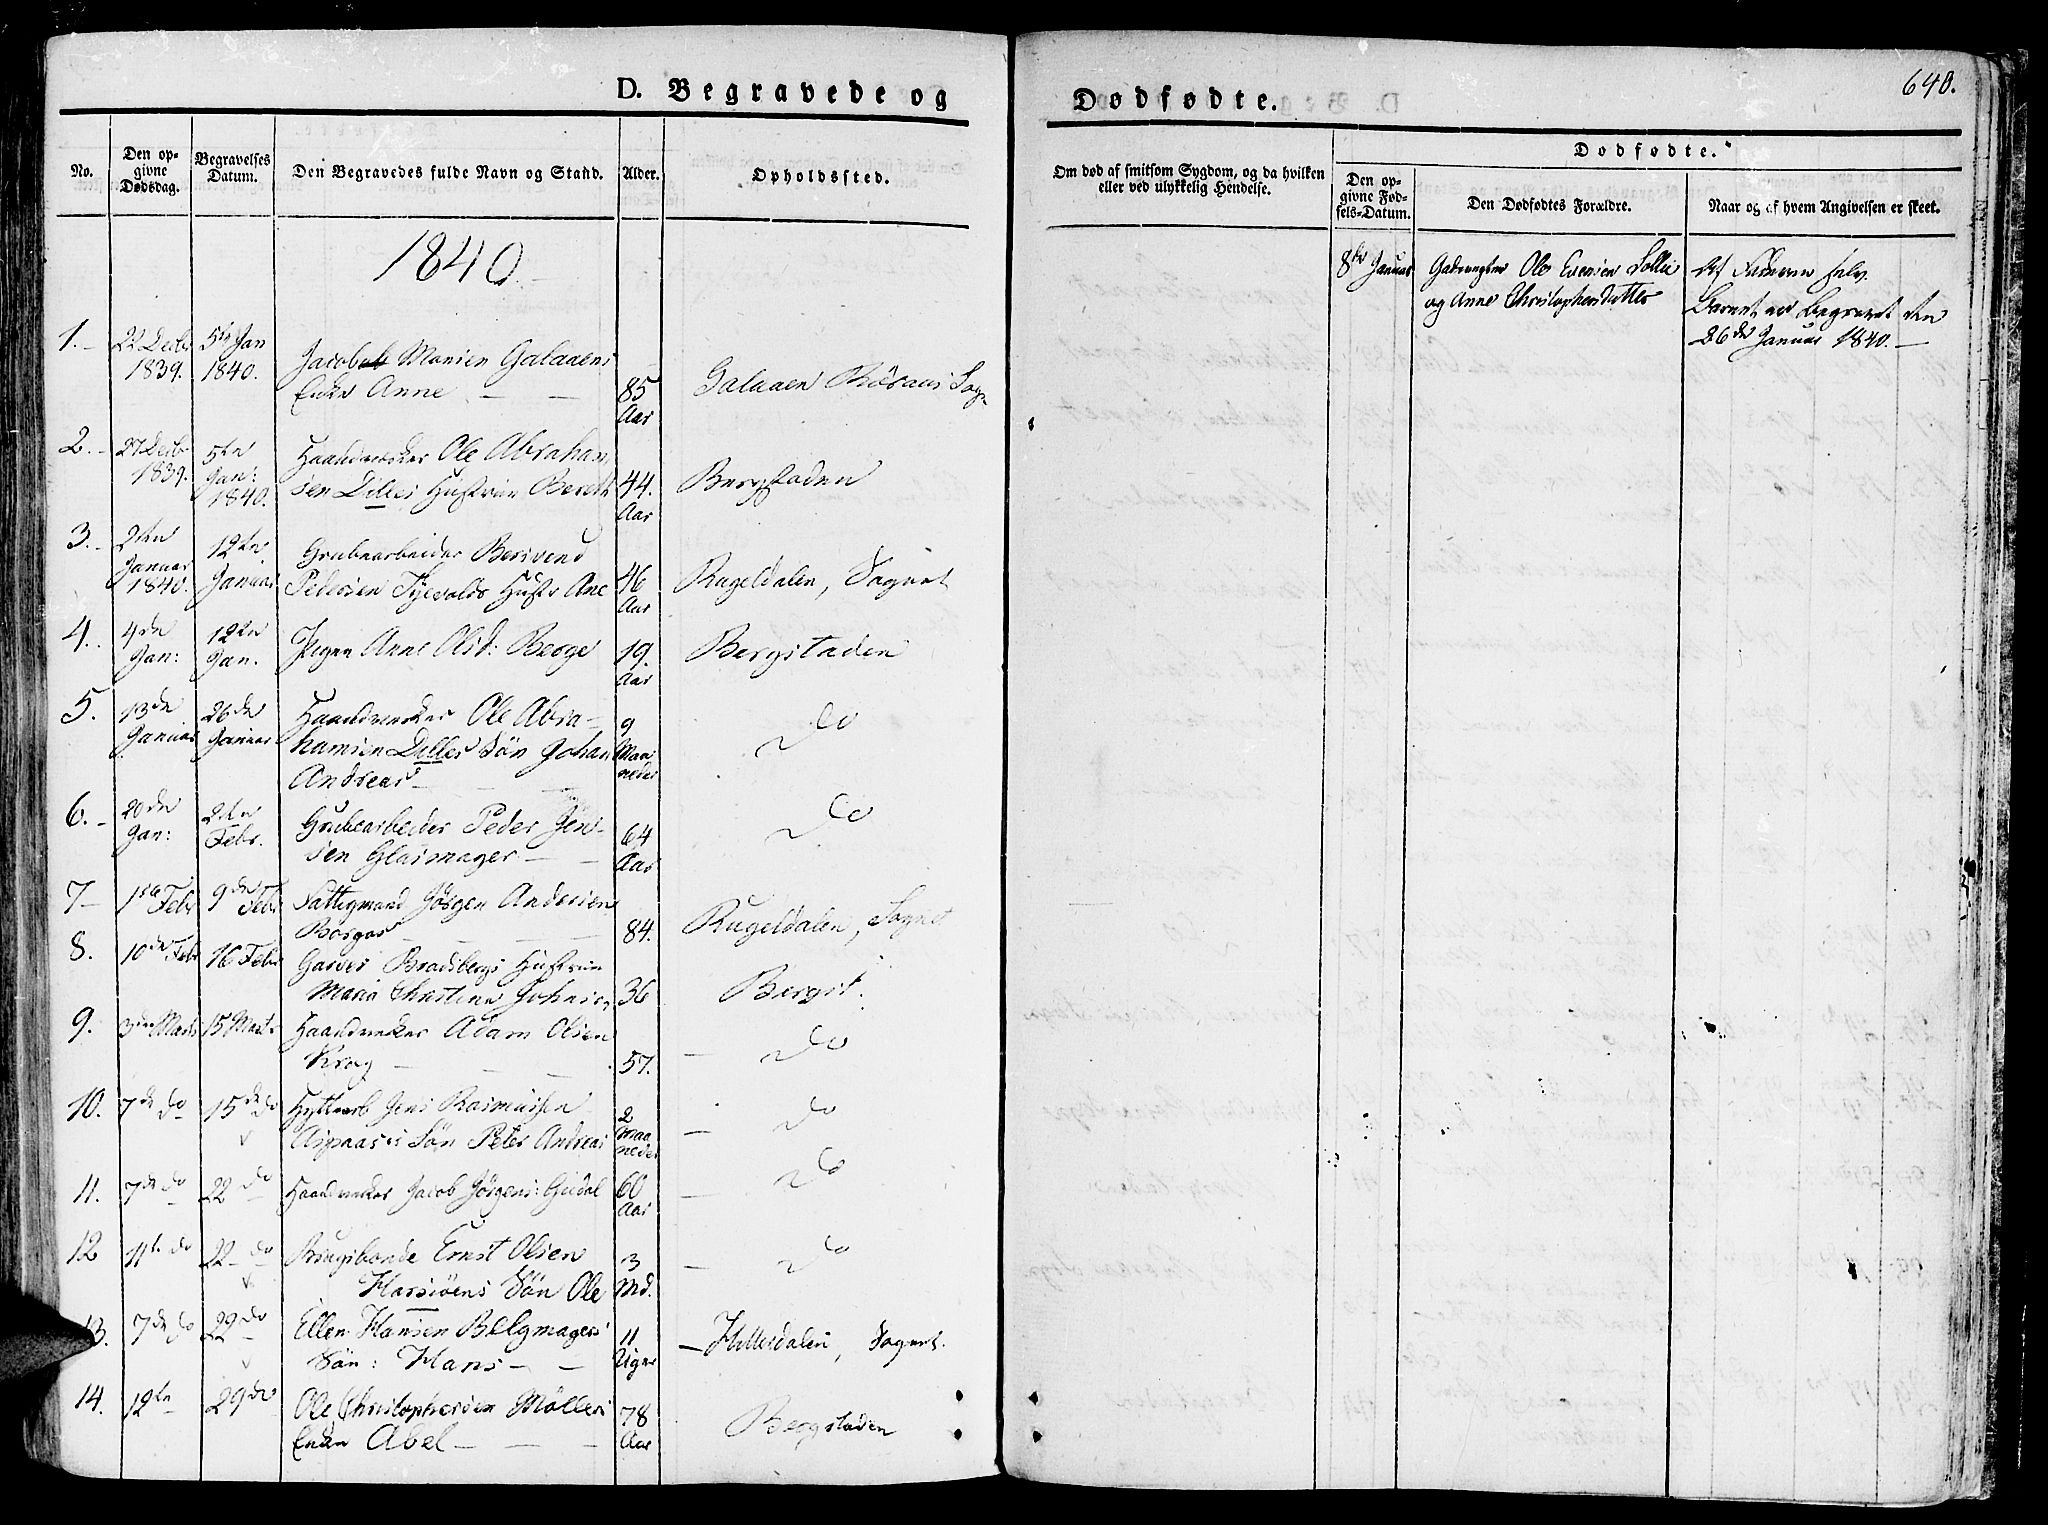 D. Begravede og
Dødfødte.
640.
No.
Den op-
givne
Dødsdag.
Begravelses
Datum.
Den Begravedes fulde Navn og Stand.
Alder.
Opholdssted.
Om død af smitsom Sygdom, og da hvilken
eller ved ulykkelig Hendelse.
Dødfødte.
Den op-
givne Fød-
sels-Datum.
Den Dødfødtes Forældre.
Naar og af hvem Angivelsen er skeet.
1840.
8de Januar Ole Evensen Sollie Af Faderen selv.
og Anne Christophersdatter Barnet er begravet den
26de Januar 1840.
1. 22 Decbr 5te Jan
1839. 1840. Jacob Monsen Galaaens
Enke Anne 85 Galaaen Röraas Sogn
Aar
2. 27 Decb 5te Haandverker Ole Abraham
1839. Jan: sen Dilles Hustrue Bereth 44. Bergstaden
1840. Aar
3. 2den 12te Grubearbeider Bersvend
Januar Januar Pedersen Tyevolds Hustr Ane 46 Rugeldalen, Sognet
1840. Aar
4. 4de 12te Pigen Anne Olsd: Berge 19. Bergstaden
Jan: Jan. Aar
5. 13de 26de Haandverker Ole Abra- 9 Do
Januar Januar hamsen Dilles Søn Johan Maa
Andreas neder
6. 20de 2den Grubearbeider Peder Jen- 64 Do
Jan: Febr. sen Glasmager Aar
7 1ste Febr 9de Febr Jørgen Andersen
Borgos 84. Rugeldalen, Sognet
8. 10de Febr 16 Febr Garver Bradsbergs Hustrue
Maria Christine Johnsen 36 Bergst.
9. 3die Marts 15 Marts Haandverker Adam Olsen
Krog 57. Do
10. 7de do 15de do Hyttearb Jens Rasmussen 2 Do
Aspaases Søn Peter Andreas Maa
neder
11. 7de do 22 do Haandverker Jacob Jørgens: Gudal 60 Do
Aar
12 11te do 22 do Brugsbonde Ernst Olsen 3 Do
Harsiøens Søn Ole Md.
13. 7de do 22 do Ellen Hansen Belgmagers 11 Hittersdalen, Sognet.
Søn: Hans Uger
14. 12te 29de Ole Christophersen Møllers 78 Bergstaden
Enke Abel Aar